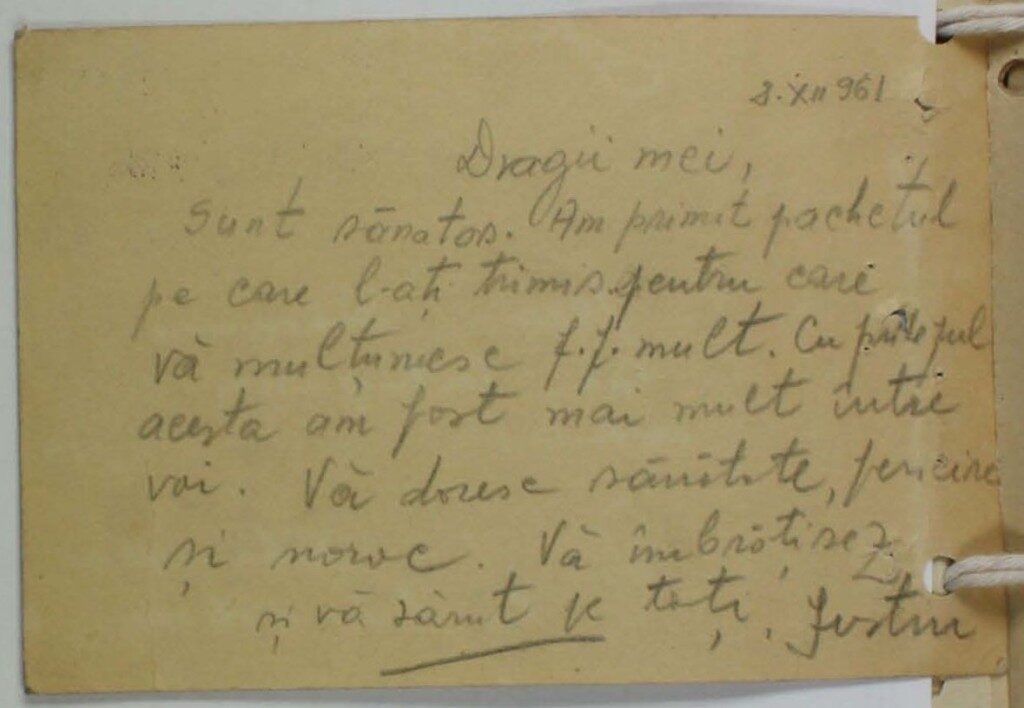 8.XII 961
Dragii mei,
Sunt sănatos. Am primit pachetul
pe care l-ați trimis pentru care
vă mulțumesc f.f. mult. Cu prilejul
acesta am fost mai mult între
voi. Vă doresc sănătate, fericire
și noroc. Vă îmbrățișez
și vă sărut pe toți. Justin